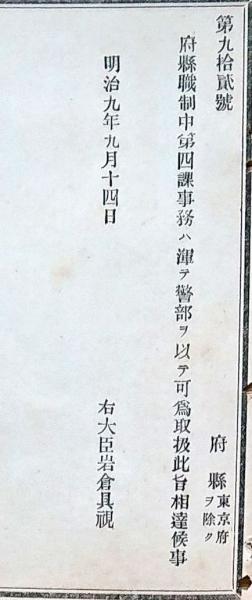 第九拾貳號
府縣 東京府
ヲ除ク
府縣職制中第四課事務ハ渾テ警部ヲ以テ可爲取扱此旨相達候事
明治九年九月十四日
右大臣岩倉具視